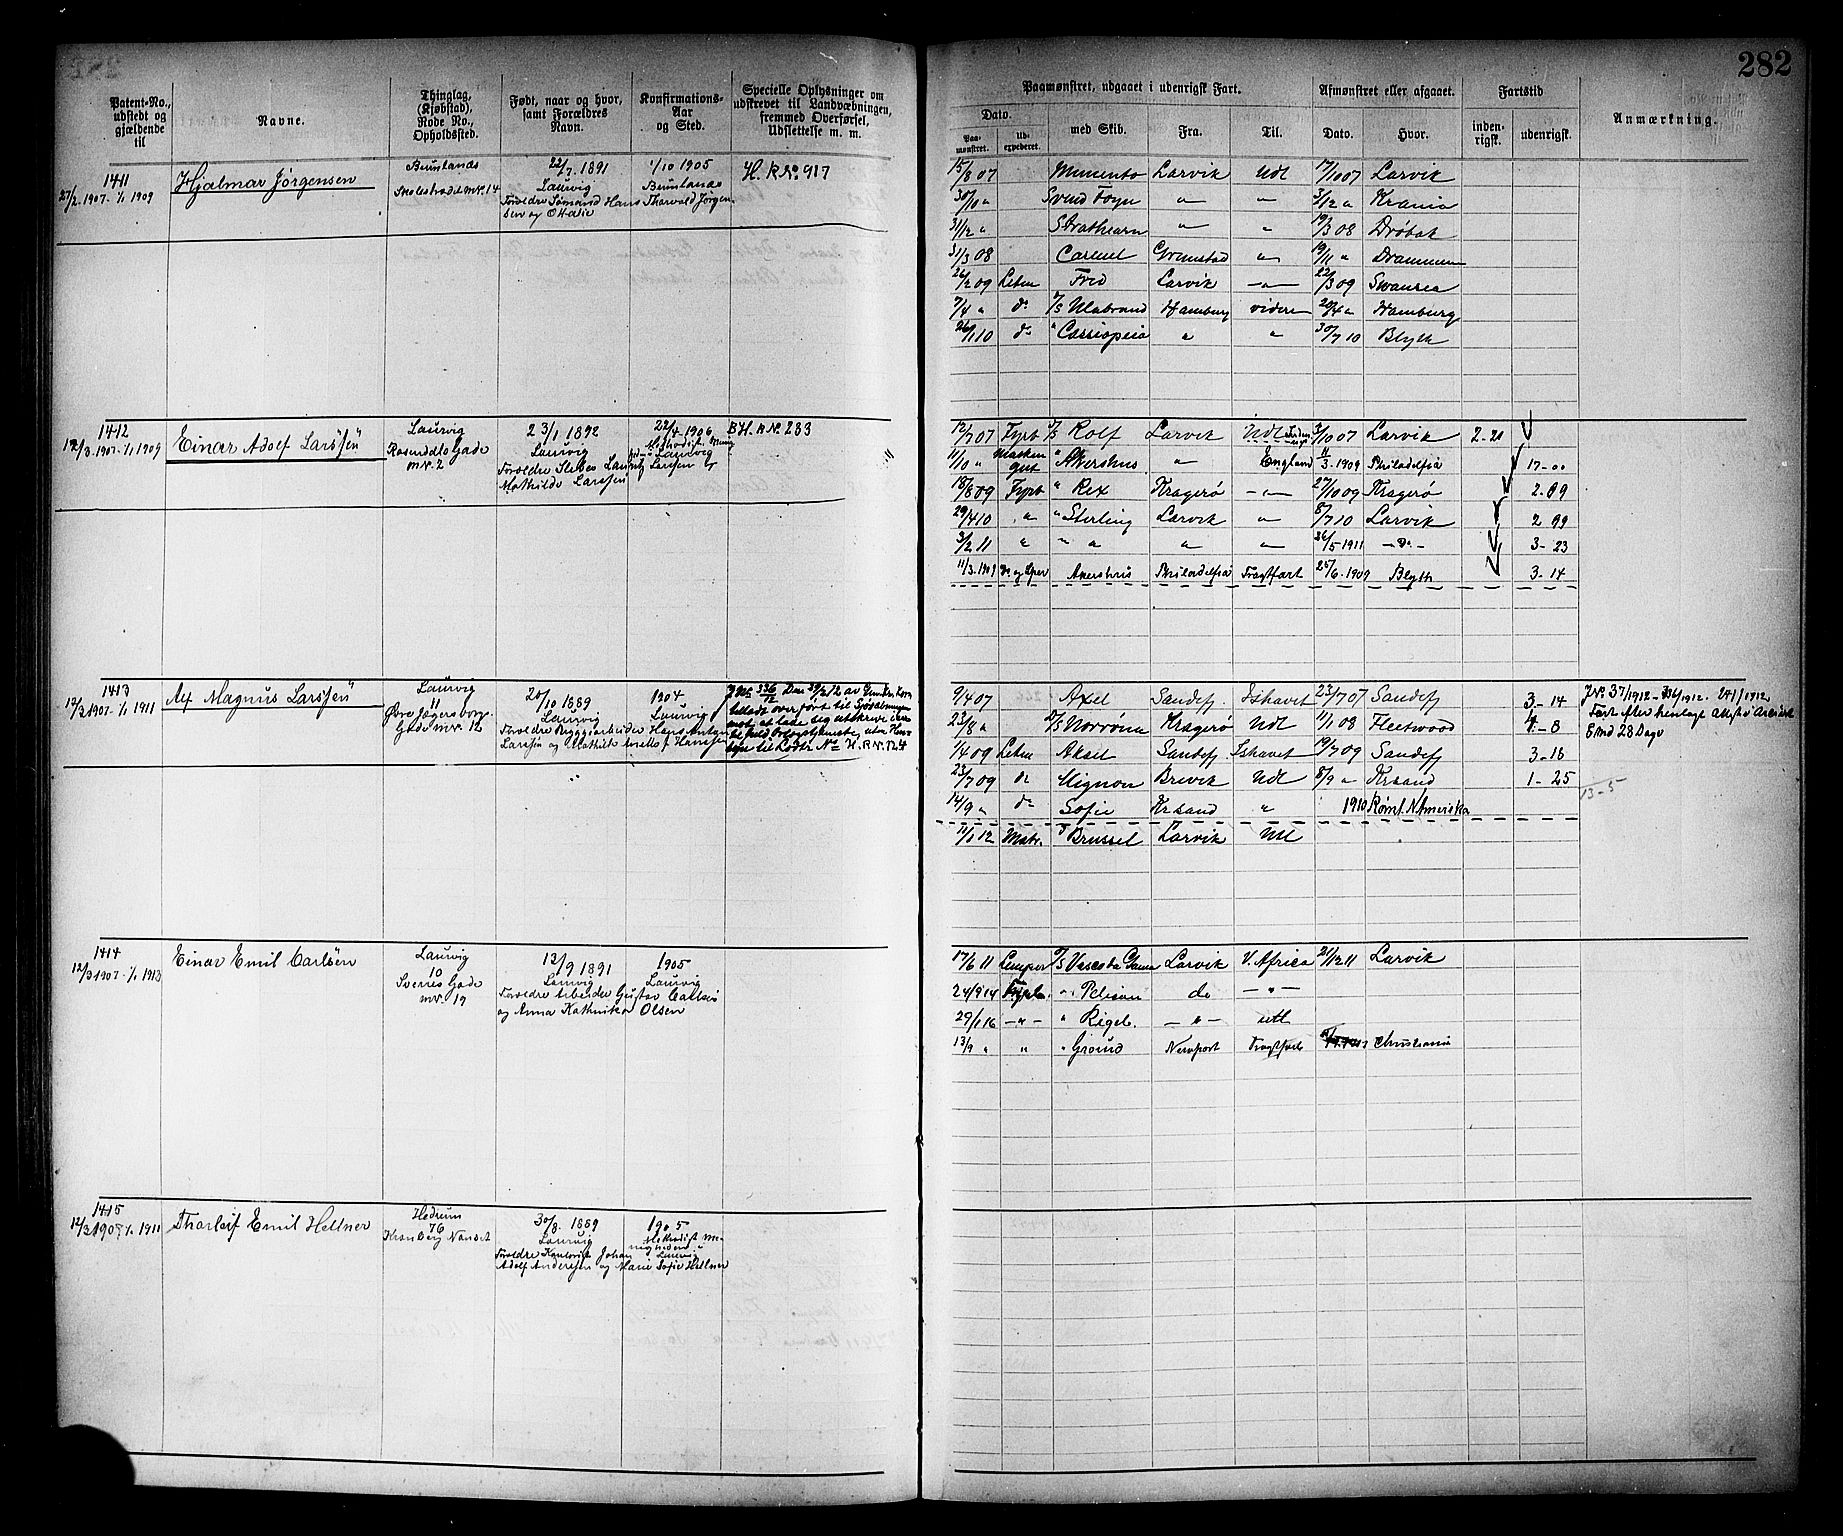 282
Patent-No., udstedt og gjældende til
Navne.
Thinglag, (Kjøbstad), Rode No., Opholdssted.
Født, naar og hvor, samt Forældres Navn.
Konfirmations-Aar og Sted.
Specielle Oplysninger om udskrevet til Landværbningen, fremmed Overførsel, Udslettelse m. m.
Paamønstret, udgaaet i udenrigsk Fart.
Dato.
Paa-mønstret.
Ud-expederet.
med Skib.
Fra.
Til.
Afmønstret eller afgaaet.
Dato.
Hvor.
Fartstid
inden-rigsk.
udenrigsk.
Anmærkning.
1411
27/2 1907 - 1/1 1909
Hjalmar Jörgensen
Skolestrædet mr. 14
22/7 1891
Laurvig
Foreldre Sømand Hans
1/10 1905
Thorvald Jörgen-
sen og Othalie
H. R No. 917
15/8 07 Mimento Larvik Udl 17/10 07 Larvik
30/10 " Svend Foyn " " 3/12 " Krania
31/12 " Strathearn " " 19/3 08 Drøbak
31/3 08 Carmel Grimstad " 19/11 " Drammen
26/2 09 Letm Frid Larvik -"- 22/3 09 Swansea
7/4 " do D/S Ulabrand Hamburg videre 20/4 " Hamburg
26/1 10 do " Cassiopeia " " 30/7 10 Blyth
1412
12/3 1907 - 1/1 1909
Einar Adolf Larssen
Laurvig
Rosendals Gade
mr. 2
2 3/1 1892
Laurvig
Mathilde Larssen
22/4 1906
Methodist Menig
Laurvig
B H. R No. 233
12/7 07 Fyrb D/S Rolf Larvik Udl 3/10 07 Larvik 2-21
11/10 " Maskin gut " Akershus " England 11/3 1909 Philadelfia 17-00
18/8 09 Fyrb " Rex Kragerø -"- 27/10 09 Kragerø 2-09
29/4 10 " " Sterling Larvik " 8/7 10 Larvik 2 09
3/2 11 " " " " " 26/5 1911 -Do- 3-23
11/3 1909 Do og Lper Akershus Philadelfia Fragtfart 25/6 1909 Blyth 3-14
1413
12/3 1907 - 1/1 1911
Alf Magnus Larssen
Laurvig
11
Øvre Jægersborg-
Gade mr. 12
20/10 1889
Laurvig
Foreldre Bryggearbeider Hans Anton
Larssen og Mathilde Hanssen
1904
Laurvig
J No 336/12
9/4 07 Axel Sandefj. Ishavet 23/7 07 Sandef 3-14
23/8 " D/S Norröna Kragerø Udl 11/1 08 Fleetwood 4-8
1/4 09 Letm Aksel Sandefj Ishavet 19/7 09 Sandefj 3-18
23/7 09 do Mignon Brevik Udl 8/9 " Krsand 1-25
14/9 " do Sofie Krsand " 1910 Rømt N Amerika
11/1 12 Matr. D Brussel Larvik Udl
J No 37/1912 - 336/1912. 24/1 1912
Fart efter fremlagte Attest
6 md 28 Dage
13-5
1414
12/3 1907 - 1/1 1913
Einar Emil Carlsen
Laurvig
10
Sverres Gade
mr. 19
13/9 1891
Laurvig
Foreldre Arbeider Gustav Carlsen
og Anna Kathrine Olsen
1905
Laurvig
17/6 11 Lemper D/S Vasco da Gama Larvik V. Africa 21/12 11 Larvik
24/9 14 Fyrb. " Pelican do -"-
29/1 16 -"- " Rigel. -"- utl
13/9 " " " Grönd Newport Fragtfart Christiania
1415
12/3 1907 1/1 1911
Thorleif Emil Hellner
Hedrum
76
Kronberg Nanset
30/8. 1889
Laurvig
Foreldre Kontorist Johan
Adolf Anderssen og Marie Sofie Hellner
1905
Methodist Me-
nigheden
Laurvig